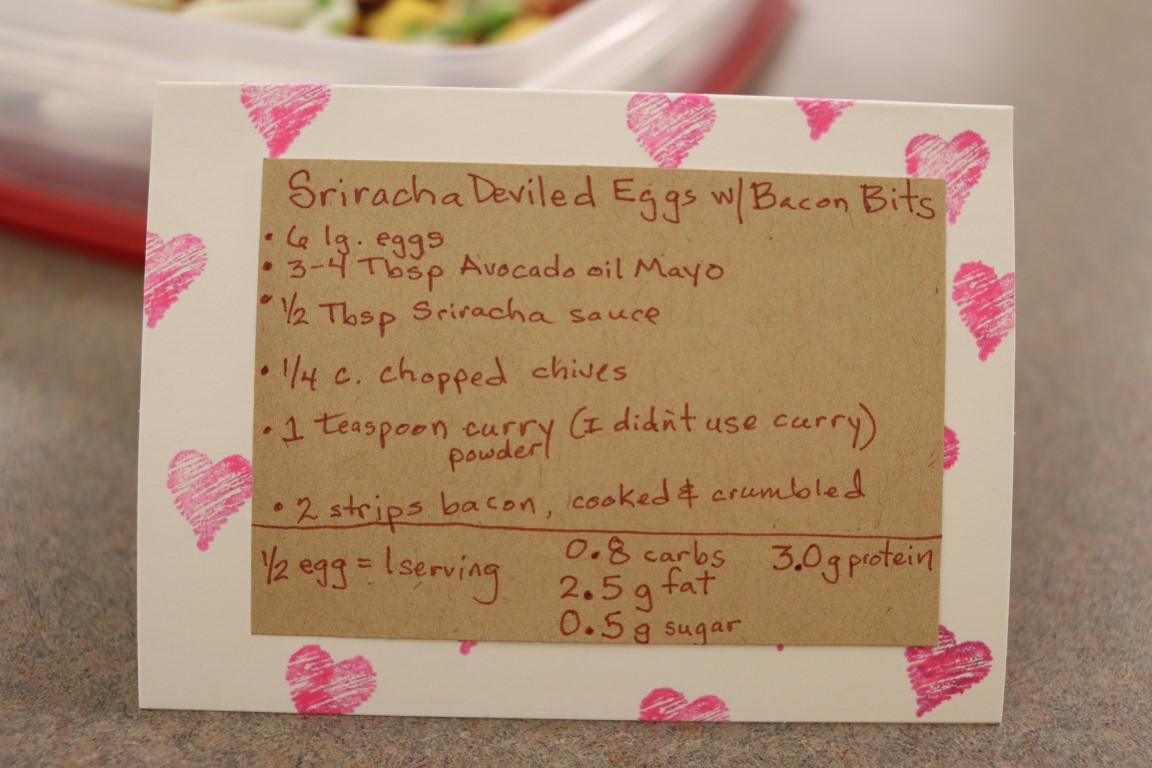 Sriracha Deviled Eggs w/ Bacon Bits
• 6 lg. eggs
• 3-4 Tbsp Avocado oil Mayo
• 1/2 Tbsp Sriracha sauce
• 1/4 c. chopped chives
• 1 teaspoon curry (I didn't use curry)
powder
• 2 strips bacon, cooked & crumbled
1/2 egg = 1 serving
0.8 carbs
3.0g protein
2.5 g fat
0.5 g sugar